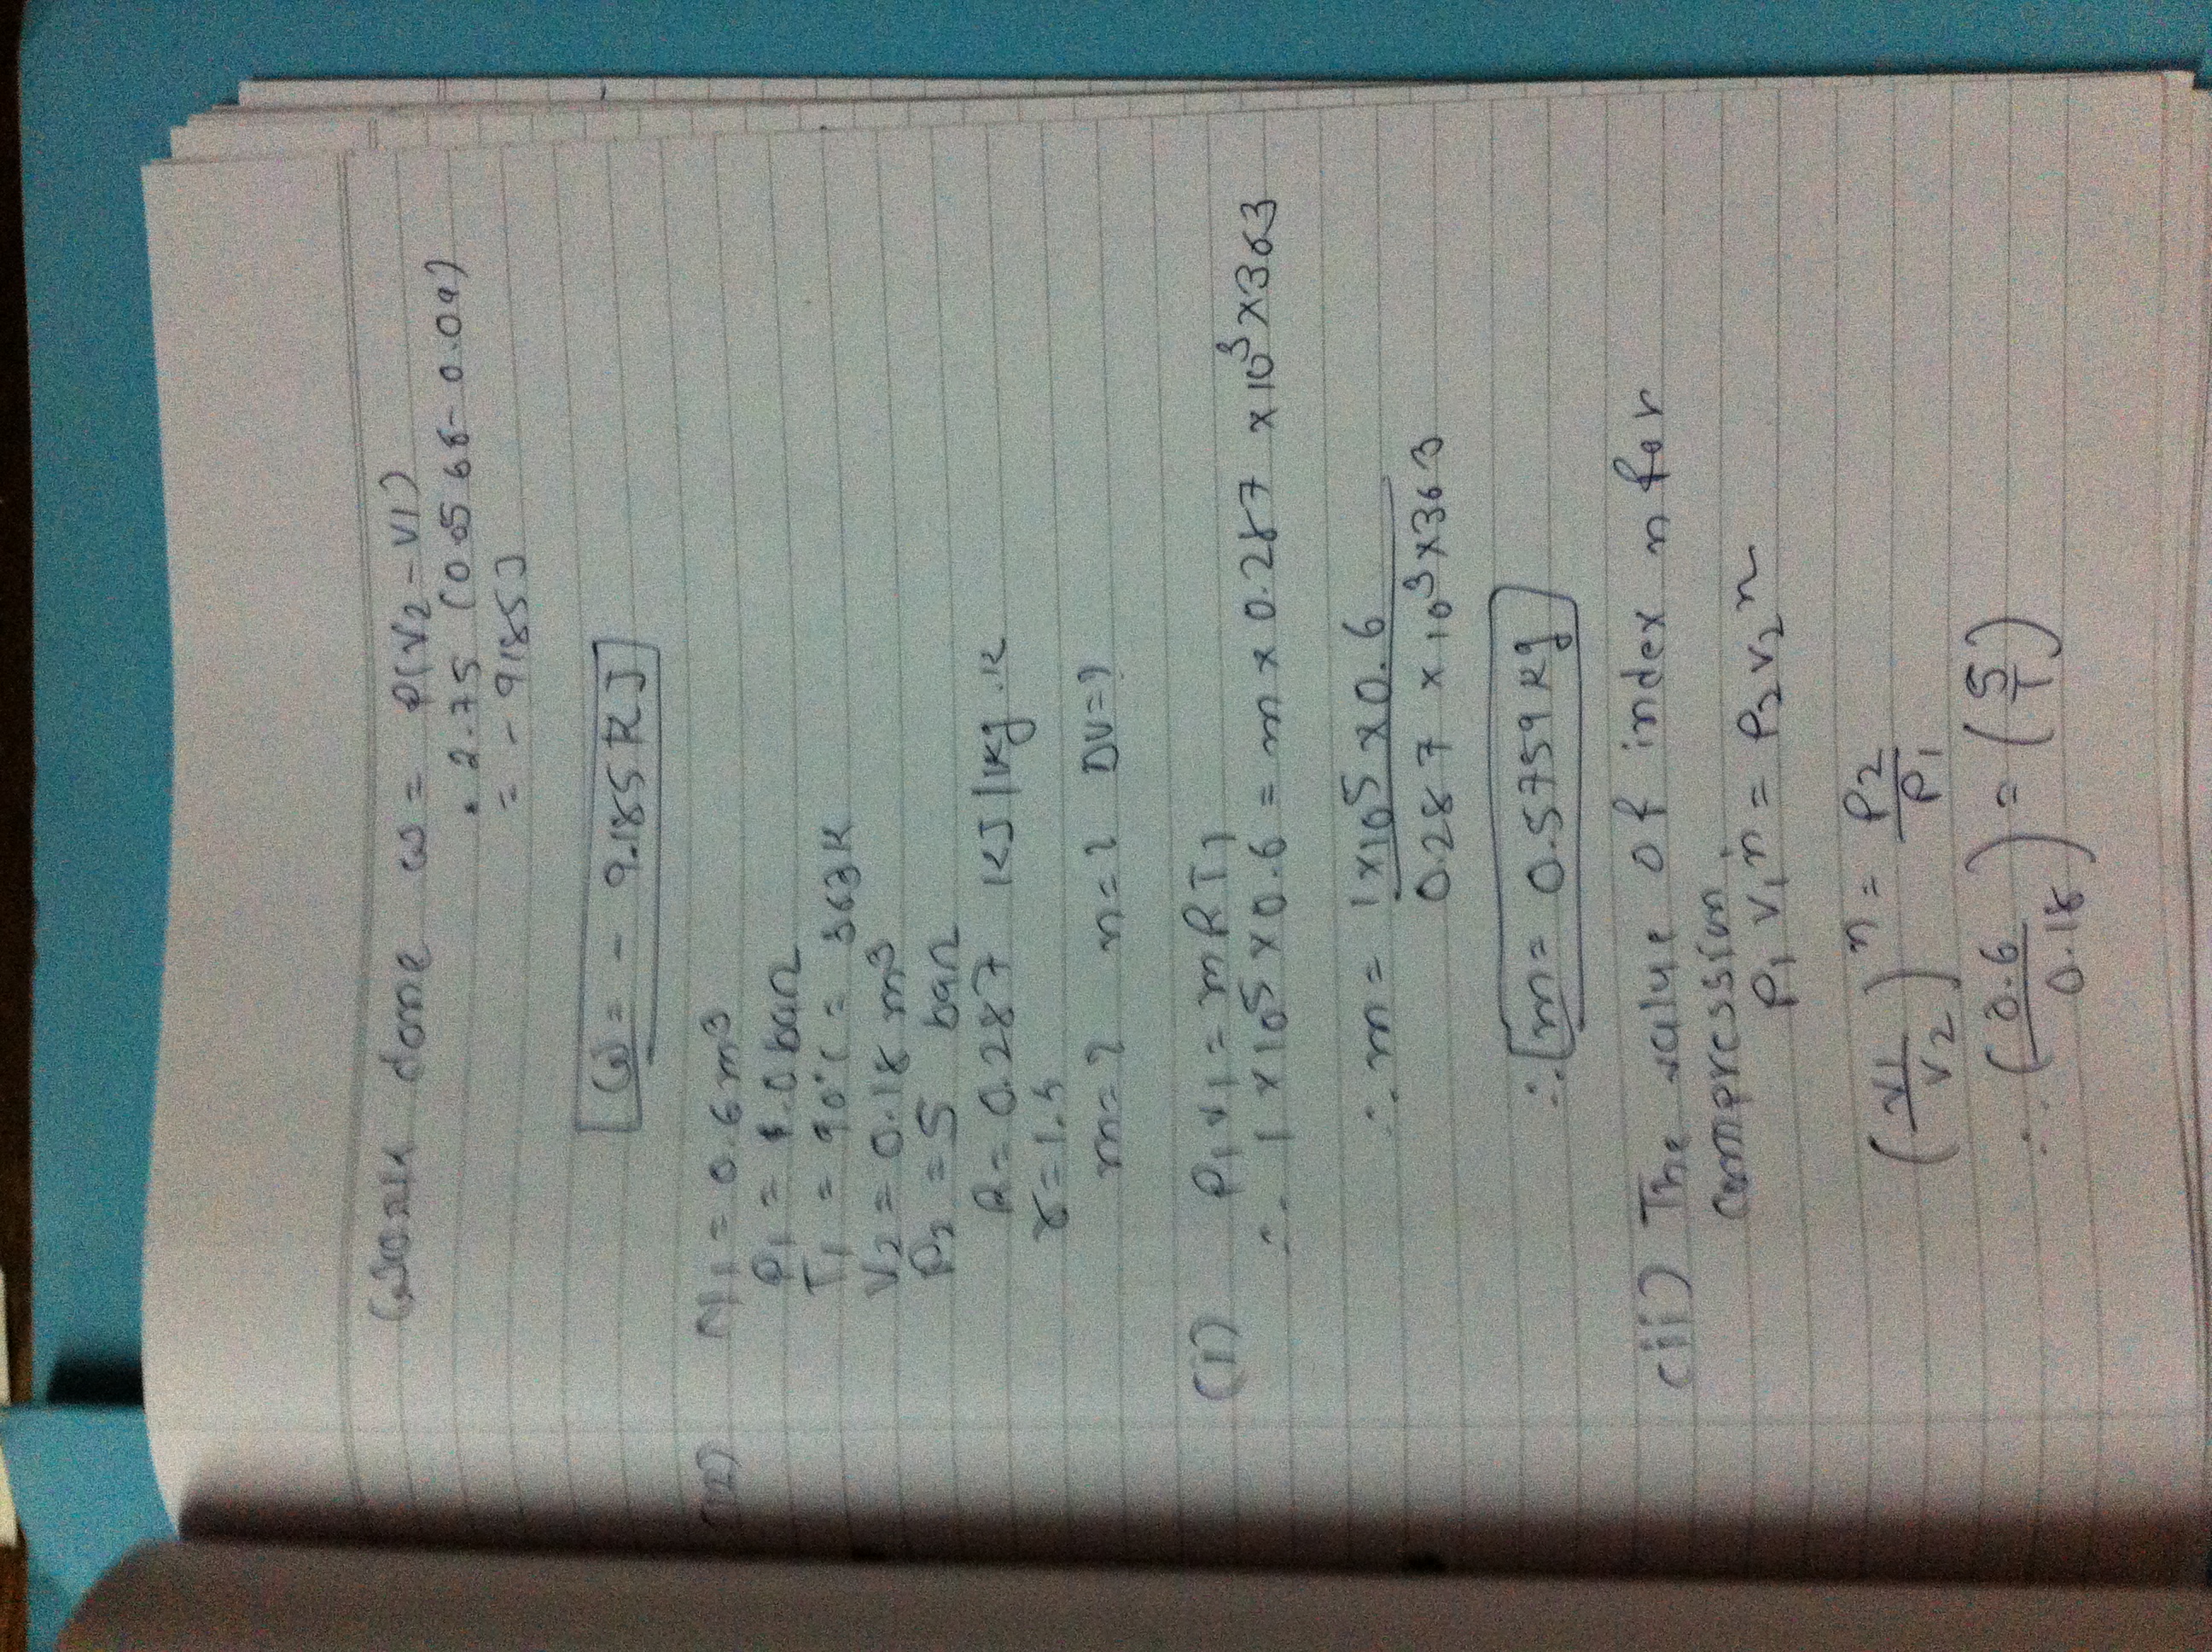 Work done ω = P(V2-V1)
= 2.75 (0.0566-0.09)
= - 9185J
ω = - 9.185 KJ
(12) V1 = 0.6 m³
P1 = 1.0 bar
T1 = 90°C = 363K
V2 = 0.18 m³
P2 = 5 bar
R = 0.287 KJ/kg.K
γ = 1.4
m=? n=? DU=?
(i) P1V1 = mRT1
∴ 1 × 10⁵ × 0.6 = m × 0.287 × 10³ × 363
∴ m = 1×10⁵ × 0.6
0.287 × 10³ × 363
∴ m = 0.5759 kg
(ii) The value of index n for
compression.
P1 V1ⁿ = P2 V2ⁿ
(V1/V2)ⁿ = P2/P1
∴ (0.6/0.18) = (5/1)